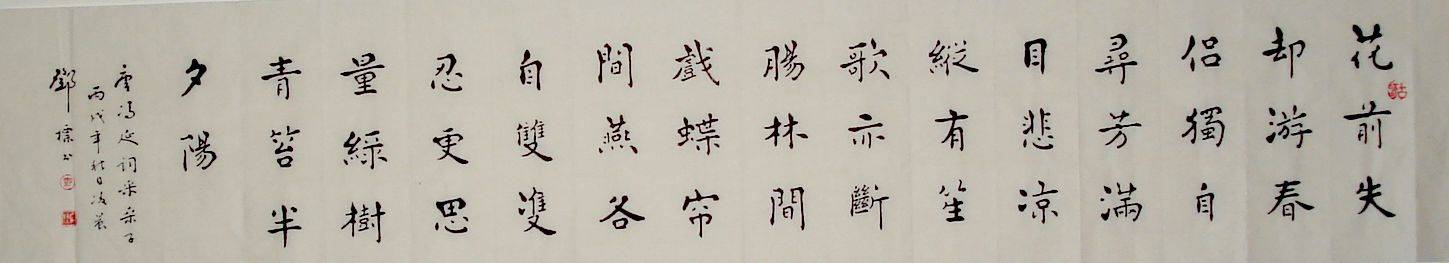 花前失
却游春
侣獨自
尋芳滿
目悲凉
縱有笙
歌亦斷
腸林間
戲蝶帘
間燕各
自雙雙
忍更思
量綠樹
青苔半
夕陽
唐冯延词采桑子
丙戌年秋日凌晨
鄧標书